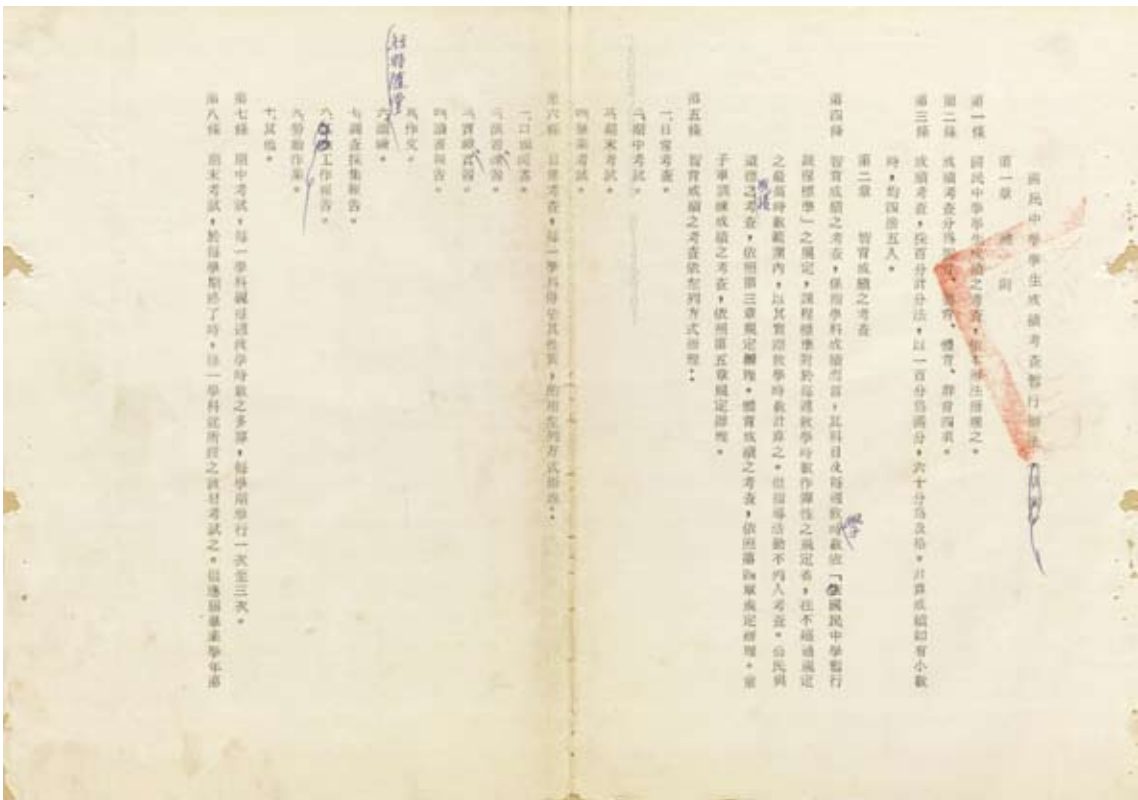 國民中學學生成績考查暫行辦法
第一章 總則
第一條 國民中學學生成績之考查，依本辦法辦理之。
第二條 成績考查分為智育、德育、體育、群育四項。
第三條 成績考查，採百分計分法，以一百分為滿分，六十分為及格。計算成績如有小數
時，均四捨五入。
第二章 智育成績之考查
第四條 智育成績之考查，係指學科成績而言，其科目及每週教學時數依「國民中學暫行
課程標準」之規定，課程標準對於每週教學時數作彈性之規定者，在不超過規定
之最高時數範圍內，以其實際教學時數計算之。但指導活動不列入考查。公民與
道德之考查，依照第三章規定辦理。體育成績之考查，依照第四章規定辦理。童
子軍訓練成績之考查，依照第五章規定辦理。
第五條 智育成績之考查依左列方式辦理：
一、日常考查。
二、期中考試。
三、期末考試。
四、畢業考試。
第六條 日常考查，每一學科得依其性質，採用左列方式辦理：
一、口頭問答。
二、演習練習。
三、實驗實習。
四、讀書報告。
五、作文。
六、測驗。
七、調查採集報告。
八、工作報告。
九、勞動作業。
十、其他。
第七條 期中考試，每一學科視每週教學時數之多寡，每學期舉行一次至三次。
第八條 期末考試，於每學期終了時，每一學科就所授之教材考試之。但逢屆畢業學年第